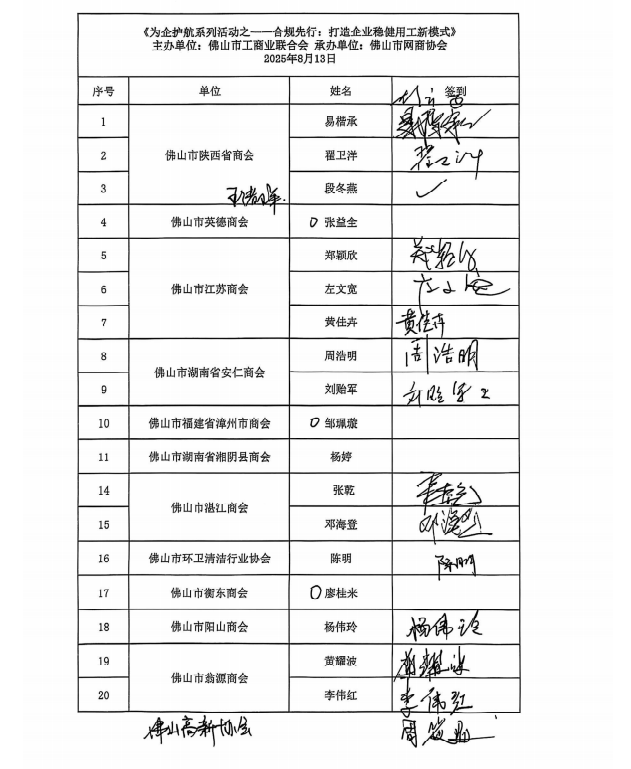 《为企护航系列活动之一——合规先行：打造企业稳健用工新模式》
主办单位：佛山市工商业联合会 承办单位：佛山市网商协会
2025年8月13日
序号 单位 姓名 签到
1 佛山市陕西省商会 易楷承
2 翟卫洋
3 段冬燕 ✓
4 佛山市英德商会 O 张益全
5 佛山市江苏商会 郑颖欣
6 左文宽 左文宽
7 黄佳卉 黄佳卉
8 佛山市湖南省安仁商会 周浩明 周浩明
9 刘贻军 刘贻军
10 佛山市福建省漳州市商会 O 邹珮璇
11 佛山市湖南省湘阴县商会 杨婷
14 佛山市湛江商会 张乾
15 邓海登 邓海登
16 佛山市环卫清洁行业协会 陈明 陈明
17 佛山市衡东商会 O 廖桂米
18 佛山市阳山商会 杨伟玲 杨伟玲
19 佛山市翁源商会 黄耀波
20 李伟红 李伟红
佛山高新协会